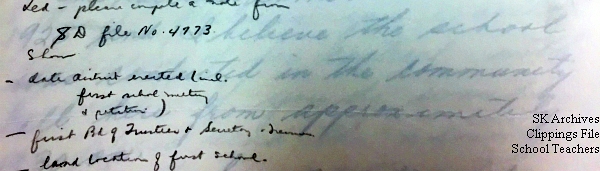 Led - please compile a note from
SD file No. 4773.
Show
- date district erected (incl.
first school meeting
& petition)
- first Bd of Trustees & Secretary
- land location of first school.
believe the school
in the community
from approximately
SK Archives
Clippings File
School Teachers